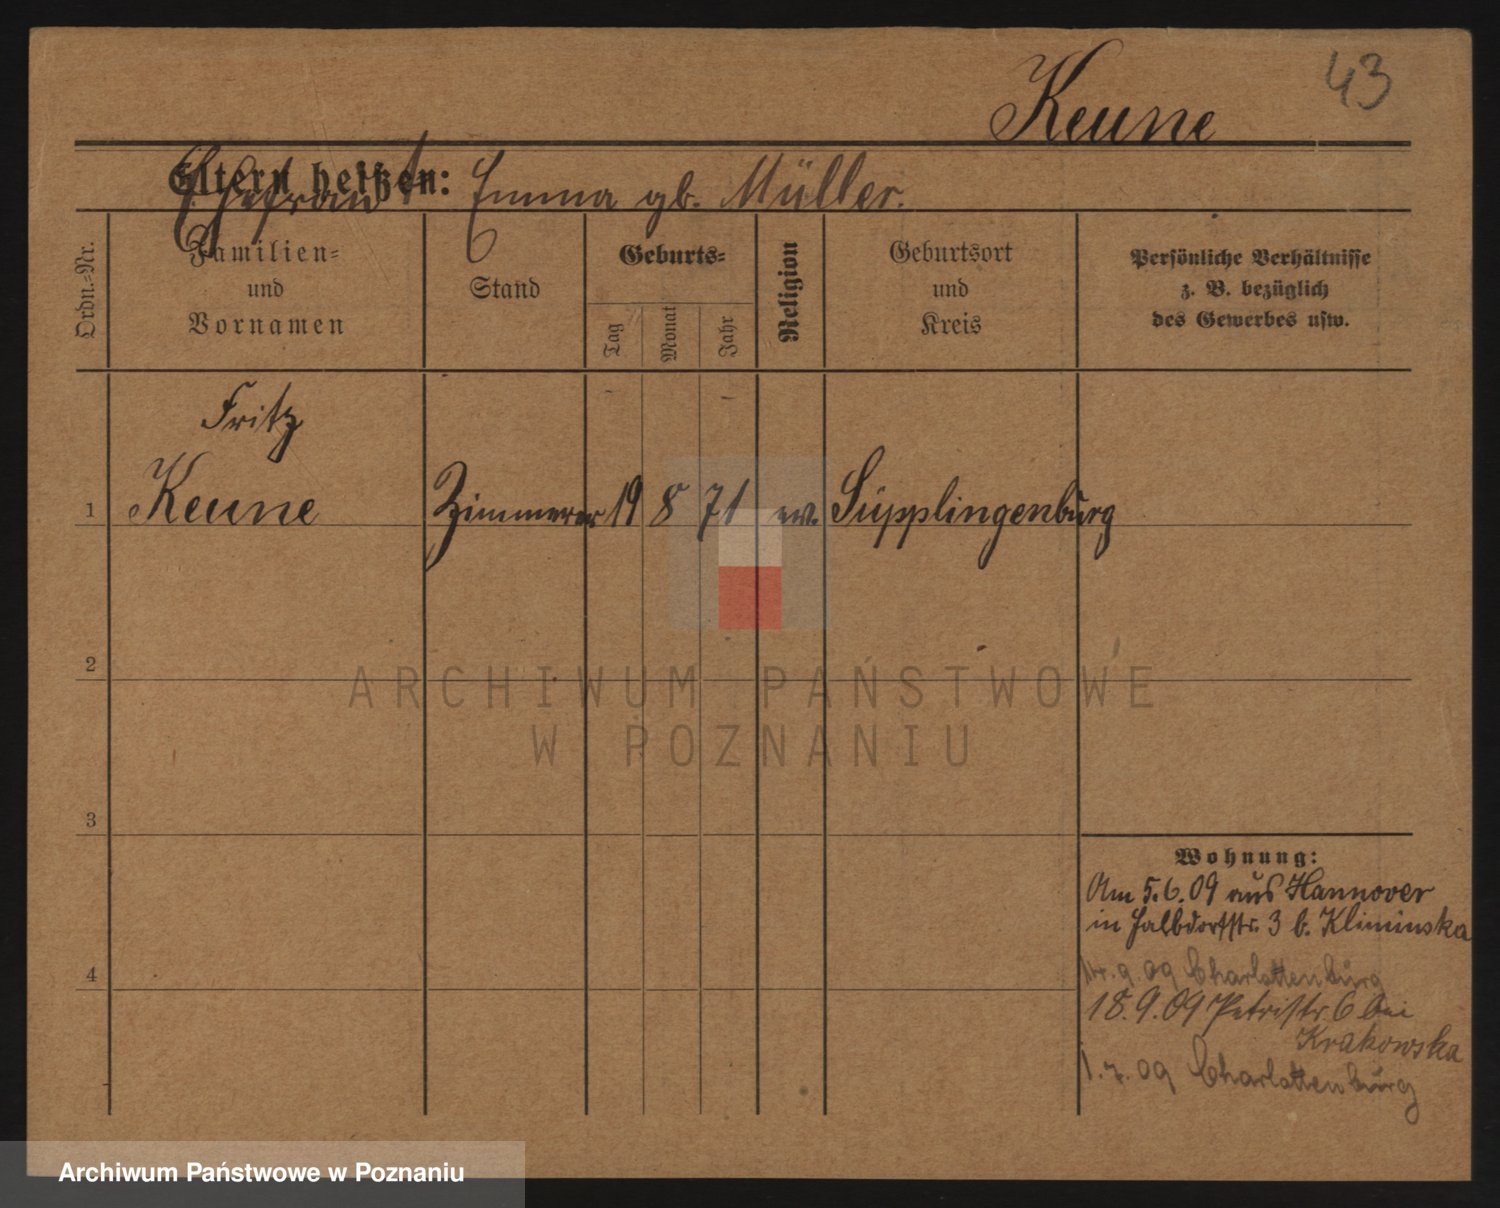 Keune
43
Eltern heißen:
Ehefrau Emma gb. Müller.
Ordn.-Nr.
Familien-
und
Vornamen
Stand
Geburts-
Tag
Monat
Jahr
Religion
Geburtsort
und
Kreis
Persönliche Verhältnisse
z. B. bezüglich
des Gewerbes usw.
Fritz
1 Keune Zimmerer 19 8 71 ev. Süpplingenburg
2
ARCHIWUM PAŃSTWOWE
W POZNANIU
3
Wohnung:
Am 5.6.09 aus Hannover
in Halbdorfstr. 3 b. Kliminska
9.09 Charlottenburg
4
18.9.09 Petristr. 6 bei
Krakowska
09 Charlottenburg
Archiwum Państwowe w Poznaniu